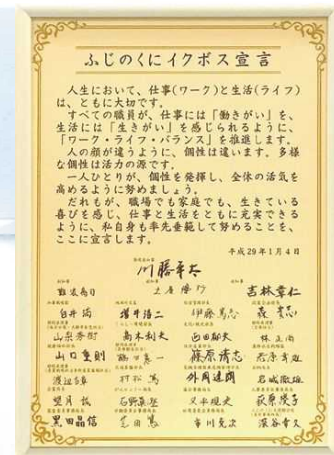 ふじのくにイクボス宣言
人生において、仕事(ワーク)と生活(ライフ)
は、ともに大切です。
すべての職員が、仕事には「働きがい」を、
生活には「生きがい」を感じられるように、
「ワーク・ライフ・バランス」を推進します。
人の顔が違うように、個性は違います。多様
な個性は活力の源です。
一人ひとりが、個性を発揮し、全体の活気を
高めるように努めましょう。
だれもが、職場でも家庭でも、生きている
喜びを感じ、仕事と生活をともに充実できる
ように、私自身も率先垂範して努めることを、
ここに宣言します。
平成29年1月4日
川勝平太
難波喬司 土屋優行 吉林章仁
白井滿 増井浩二 伊藤篤志
山梨秀樹 高木利夫 西田郁夫 林正尚
山口重則 篠原清志
渡辺 村松篤 外岡達朗
望月誠
黒田晶信 市川克次 深谷